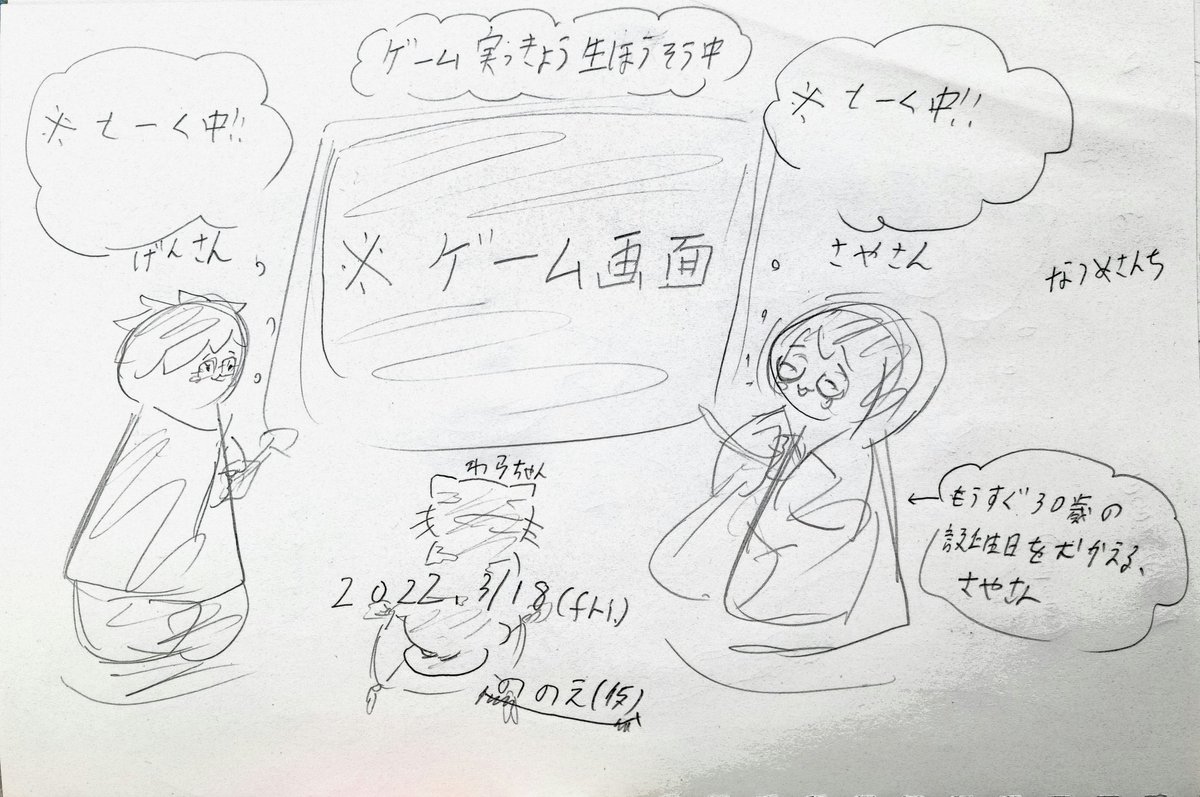 ゲーム実っきょう生ほうそう中
※ せーく中!!
※ せーく中!!
げんさん
さやさん
なつめさんち
※ ゲーム画面
わらちゃん
←もうすぐ30歳の
誕生日をむかえる、
さやさん
2022.3/18(fri.)
ののえ(仮)